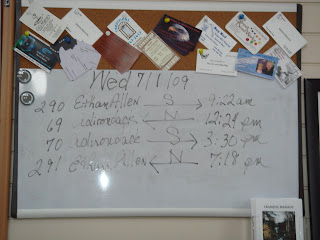 Wed 7/1/09
290 Ethan Allen S → 9:22 am
69 Adirondack ← N 12:24 pm
70 Adirondack S → 3:30 pm
291 Ethan Allen ← N 7:18 pm